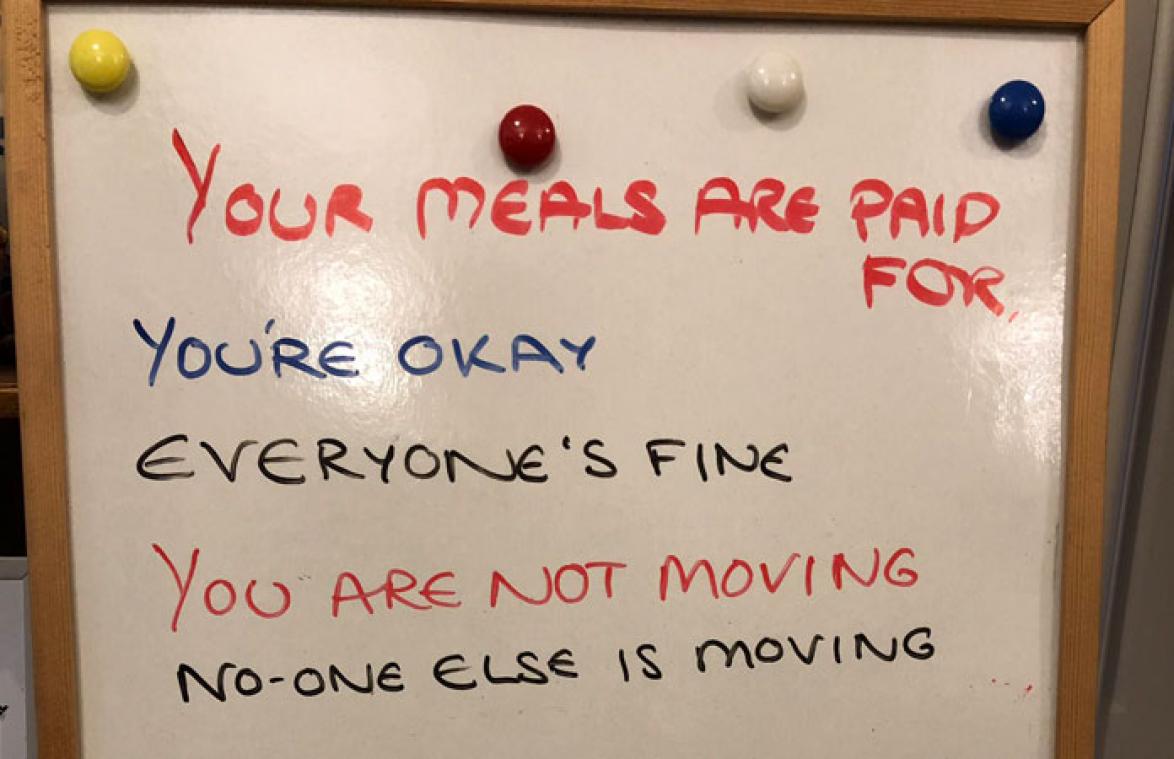 YOUR MEALS ARE PAID
FOR.
YOU'RE OKAY
EVERYONE'S FINE
YOU ARE NOT MOVING
NO-ONE ELSE IS MOVING